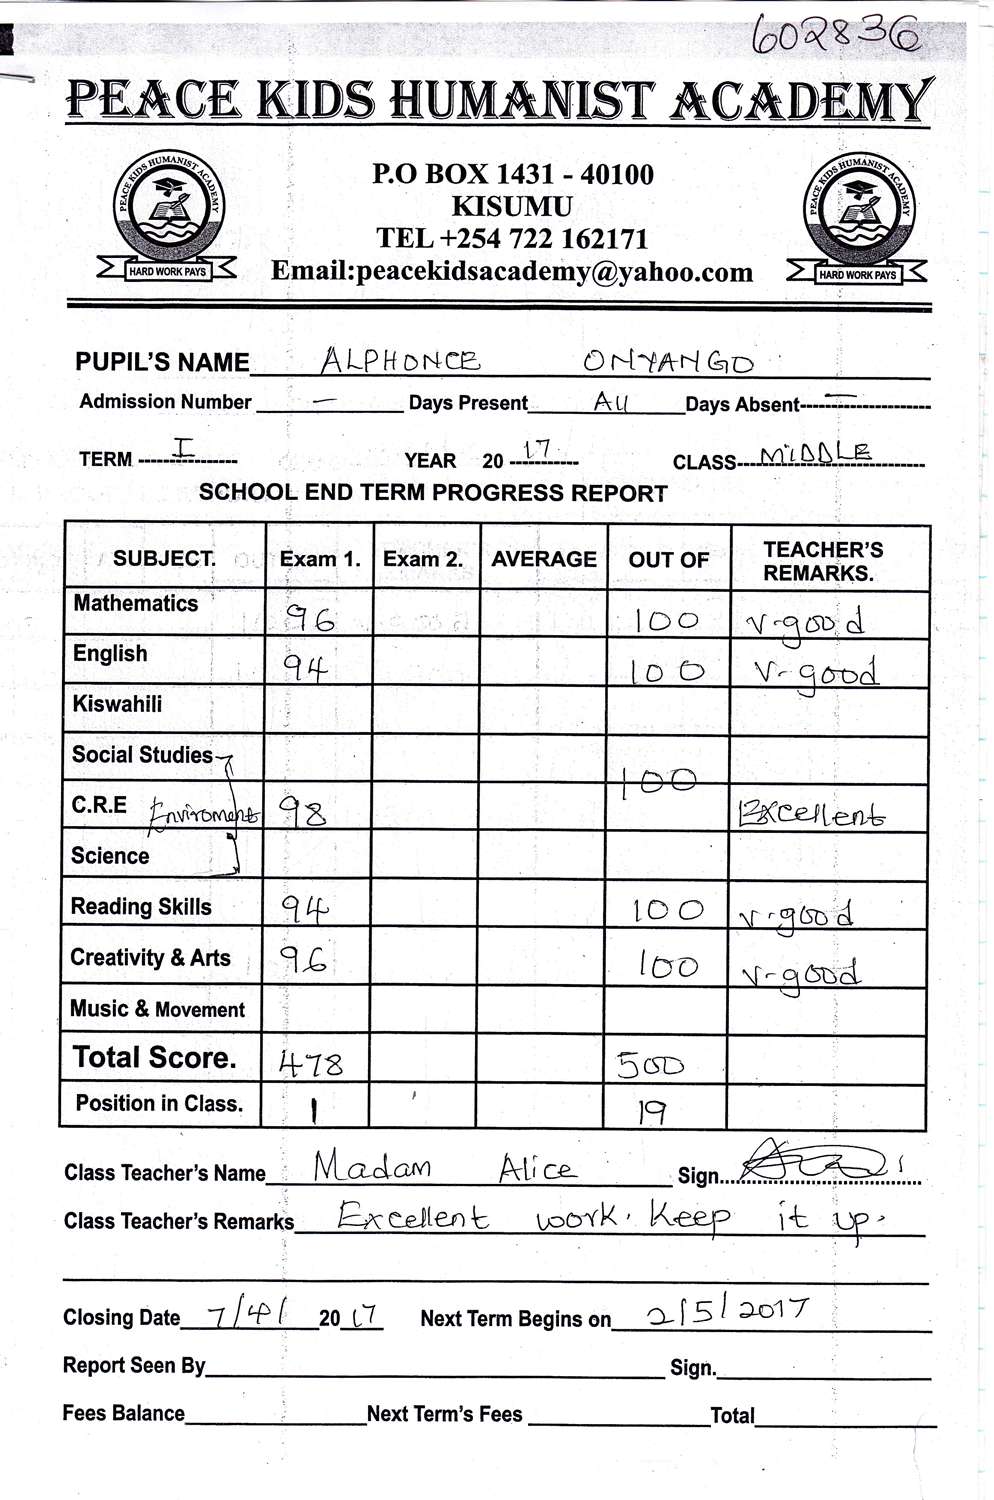 602836
PEACE KIDS HUMANIST ACADEMY
PEACE KIDS HUMANIST ACADEMY
HARD WORK PAYS
P.O BOX 1431 - 40100
KISUMU
TEL +254 722 162171
Email:peacekidsacademy@yahoo.com
PEACE KIDS HUMANIST ACADEMY
HARD WORK PAYS
PUPIL'S NAME ALPHONCE ONYANGO
Admission Number — Days Present All Days Absent —
TERM I YEAR 20 17 CLASS MIDDLE
SCHOOL END TERM PROGRESS REPORT
SUBJECT. Exam 1. Exam 2. AVERAGE OUT OF TEACHER'S REMARKS.
Mathematics 96 100 V-good
English 94 100 V-good
Kiswahili
Social Studies
100
C.R.E Enviroment 98 Excellent
Science
Reading Skills 94 100 V-good
Creativity & Arts 96 100 V-good
Music & Movement
Total Score. 478 500
Position in Class. 1 19
Class Teacher's Name Madam Alice Sign.
Class Teacher's Remarks Excellent work. Keep it up.
Closing Date 7/4/ 20 17 Next Term Begins on 2/5/2017
Report Seen By Sign.
Fees Balance Next Term's Fees Total